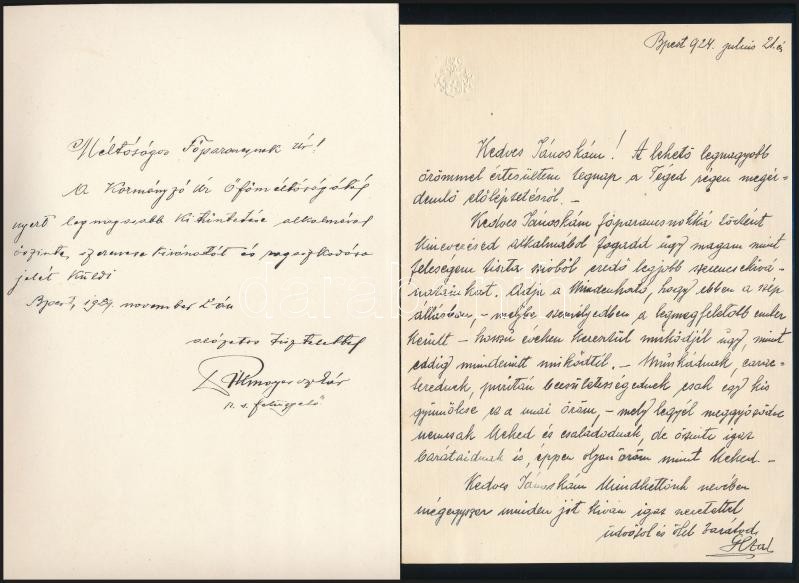 Méltóságos Főparancsnok Úr!
A Kormányzó Úr Őfőméltóságától
nyert legmagasabb kitüntetése alkalmával
őszinte, szerencse kivánatát és ragaszkodása
jelét küldi
Bpest, 1929. november
alázatos tisztelettel
felügyelő
Bpest 924. julius 21.én
Kedves Jánoskám! A lehető legnagyobb
örömmel értesültem tegnap a Téged régen megér-
demlő előléptetésről. –
Kedves Jánoskám főparancsnokká történt
kinevezésed alkalmából fogadd úgy magam mint
feleségem tiszta szivből eredő legjobb szerencsekivá-
natainkat. Adja a Mindenható, hogy ebben a szép
állásban, – melybe személyedben a legmegfelelőbb ember
került – hosszú éveken keresztül működjél úgy, mint
eddig mindenütt működtél. – Munkádnak,
puritán becsületességednek csak egy kis
gyümölcse ez a mai öröm, – mely legyél meggyőződve
nemcsak Neked és családodnak, de őszinte igaz
barátaidnak is, éppen olyan öröm mint Neked –
Kedves Jánoskám Mindkettőnk nevében
mégegyszer minden jót kiván igaz szeretettel
üdvözöl és ölel barátod
darabanth